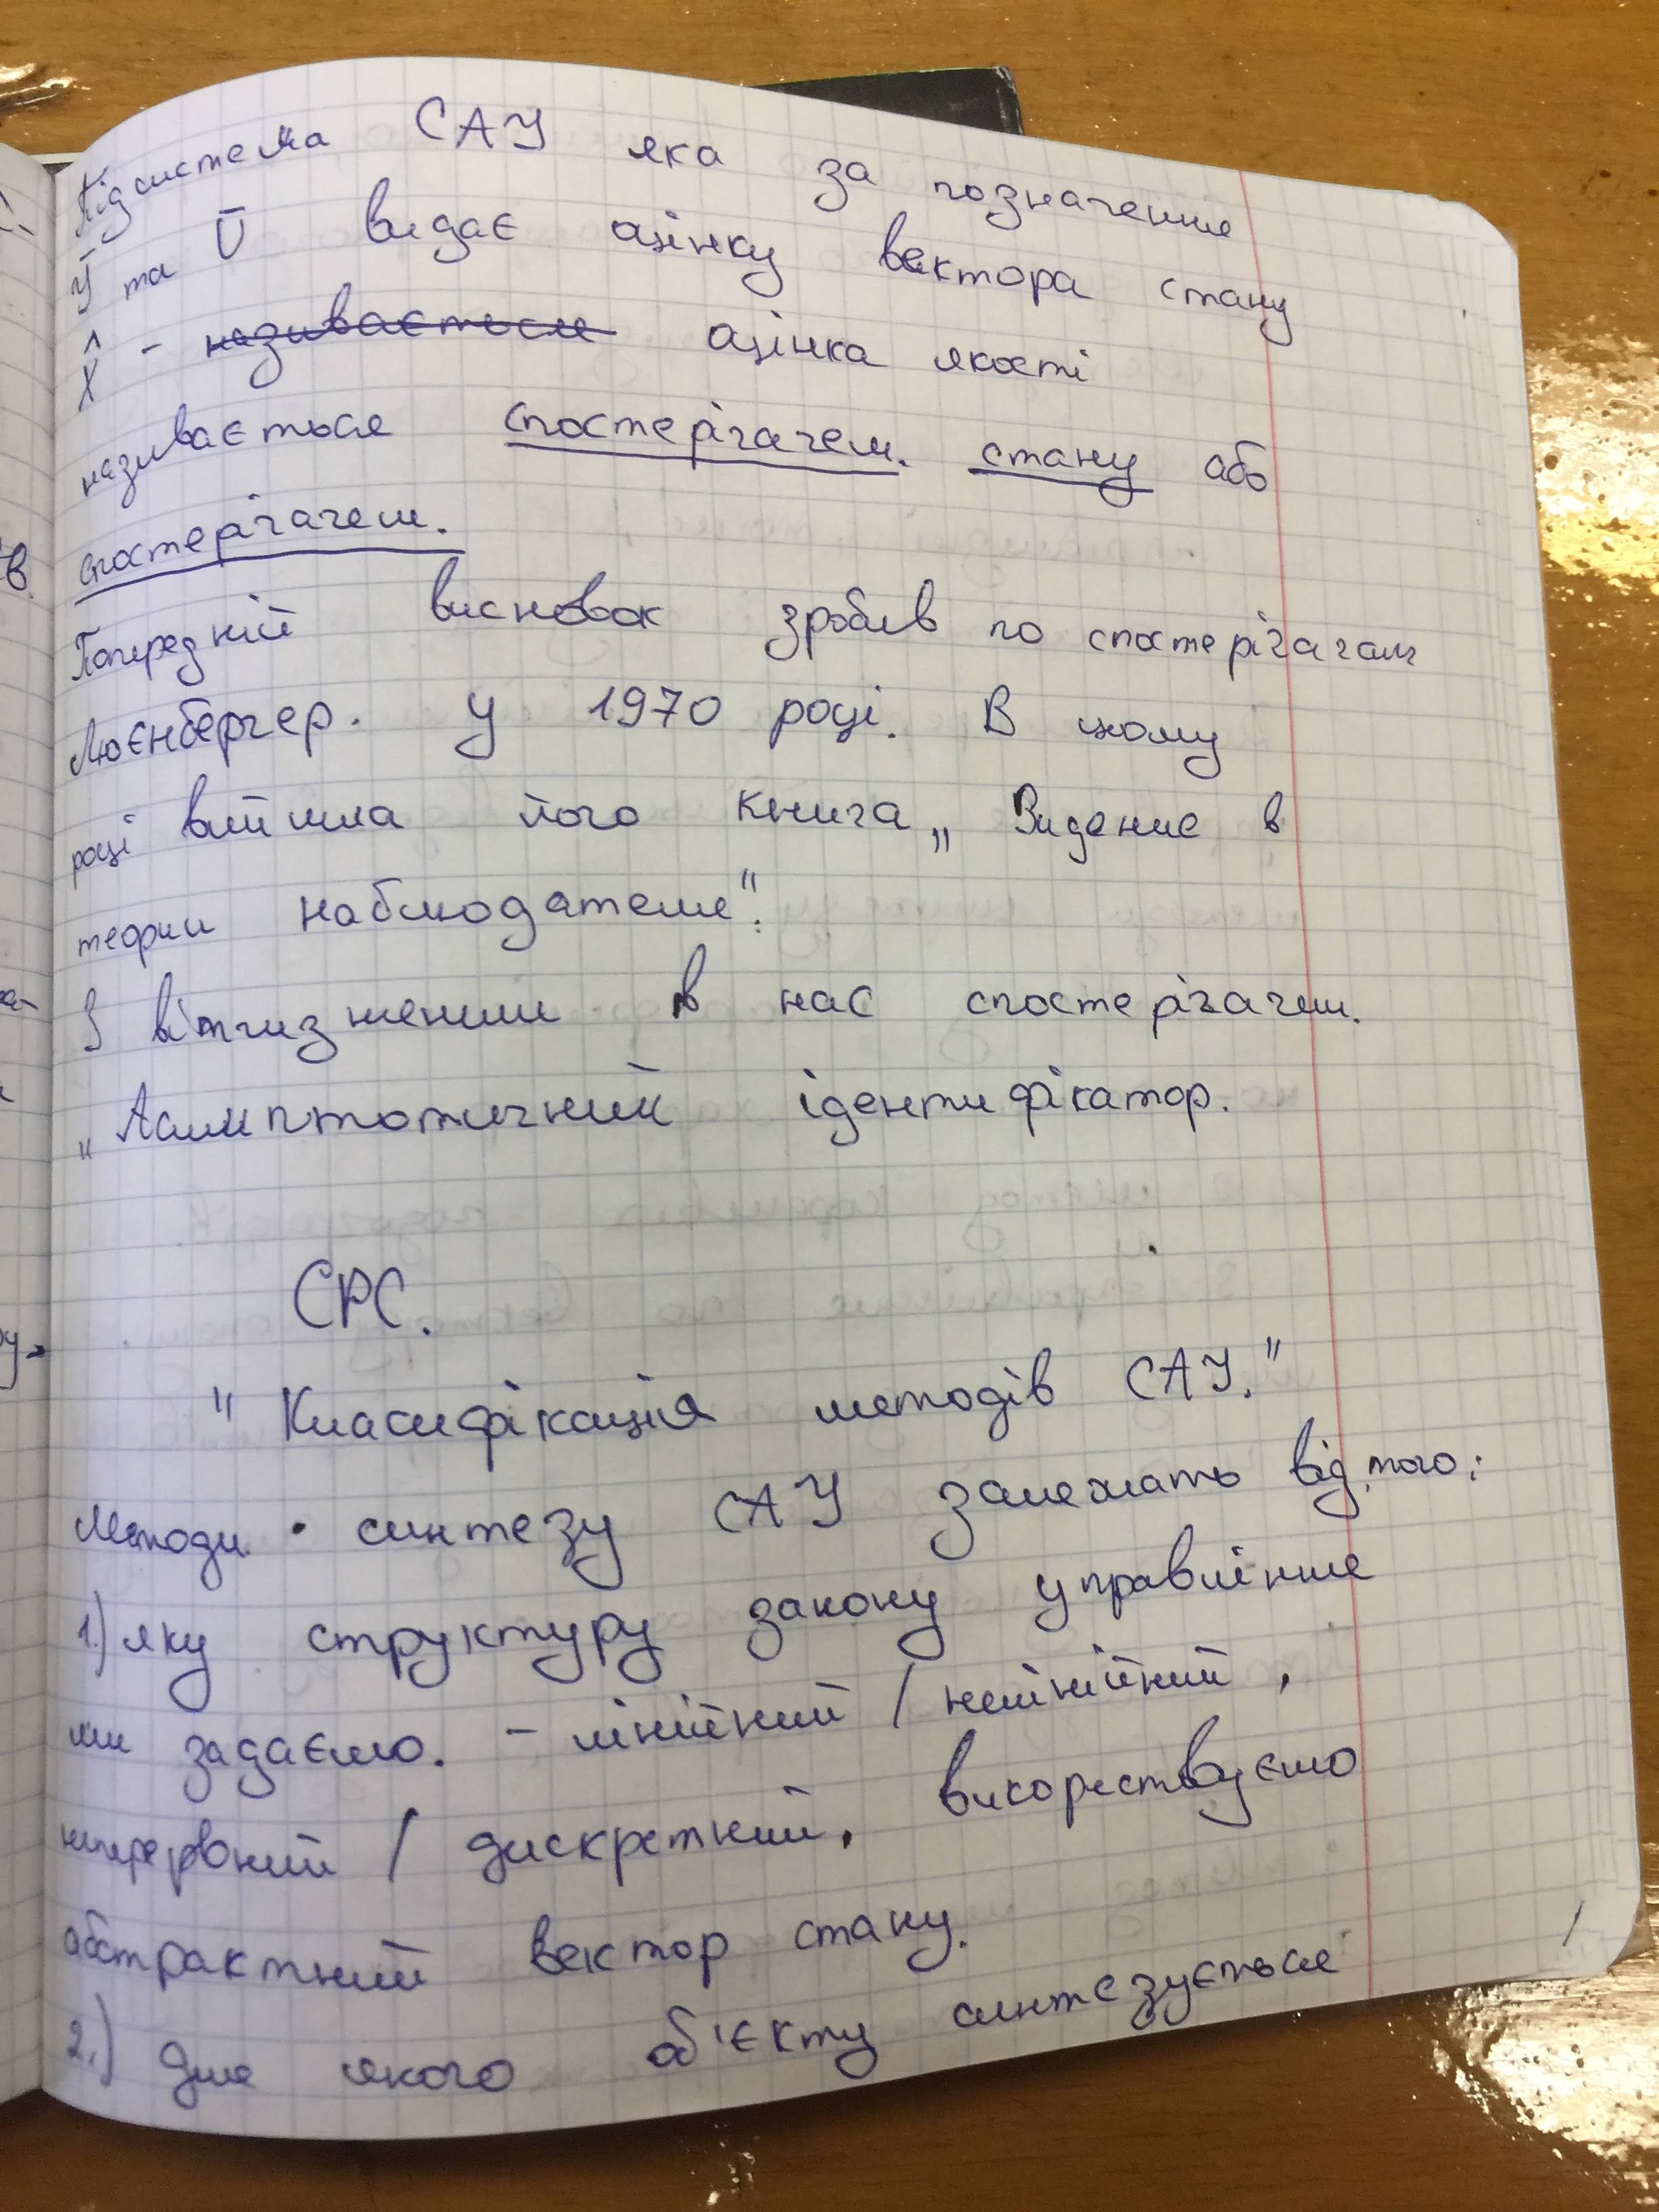 Підсистема САУ яка за позначення
ȳ та Ū видає оцінку вектора стану
X̂ - називається оцінка якості
називається спостерігачем. стану або
спостерігачем.
Попередній висновок зробив по спостерігачам
Люєнбергер. у 1970 році. В цьому
році вийшла його книга „Видение в
теории наблюдателя".
З вітчизняними в нас спостерігачем.
„Асимптотичний ідентифікатор.
СРС.
" Класифікація методів САУ."
Методи синтезу САУ залежать від того:
1.) яку структуру закону управління
ми задаємо. - лінійний / нелінійний,
неперервний / дискретний, використвуємо
абстрактний вектор стану.
2.) для якого об'єкту синтезується